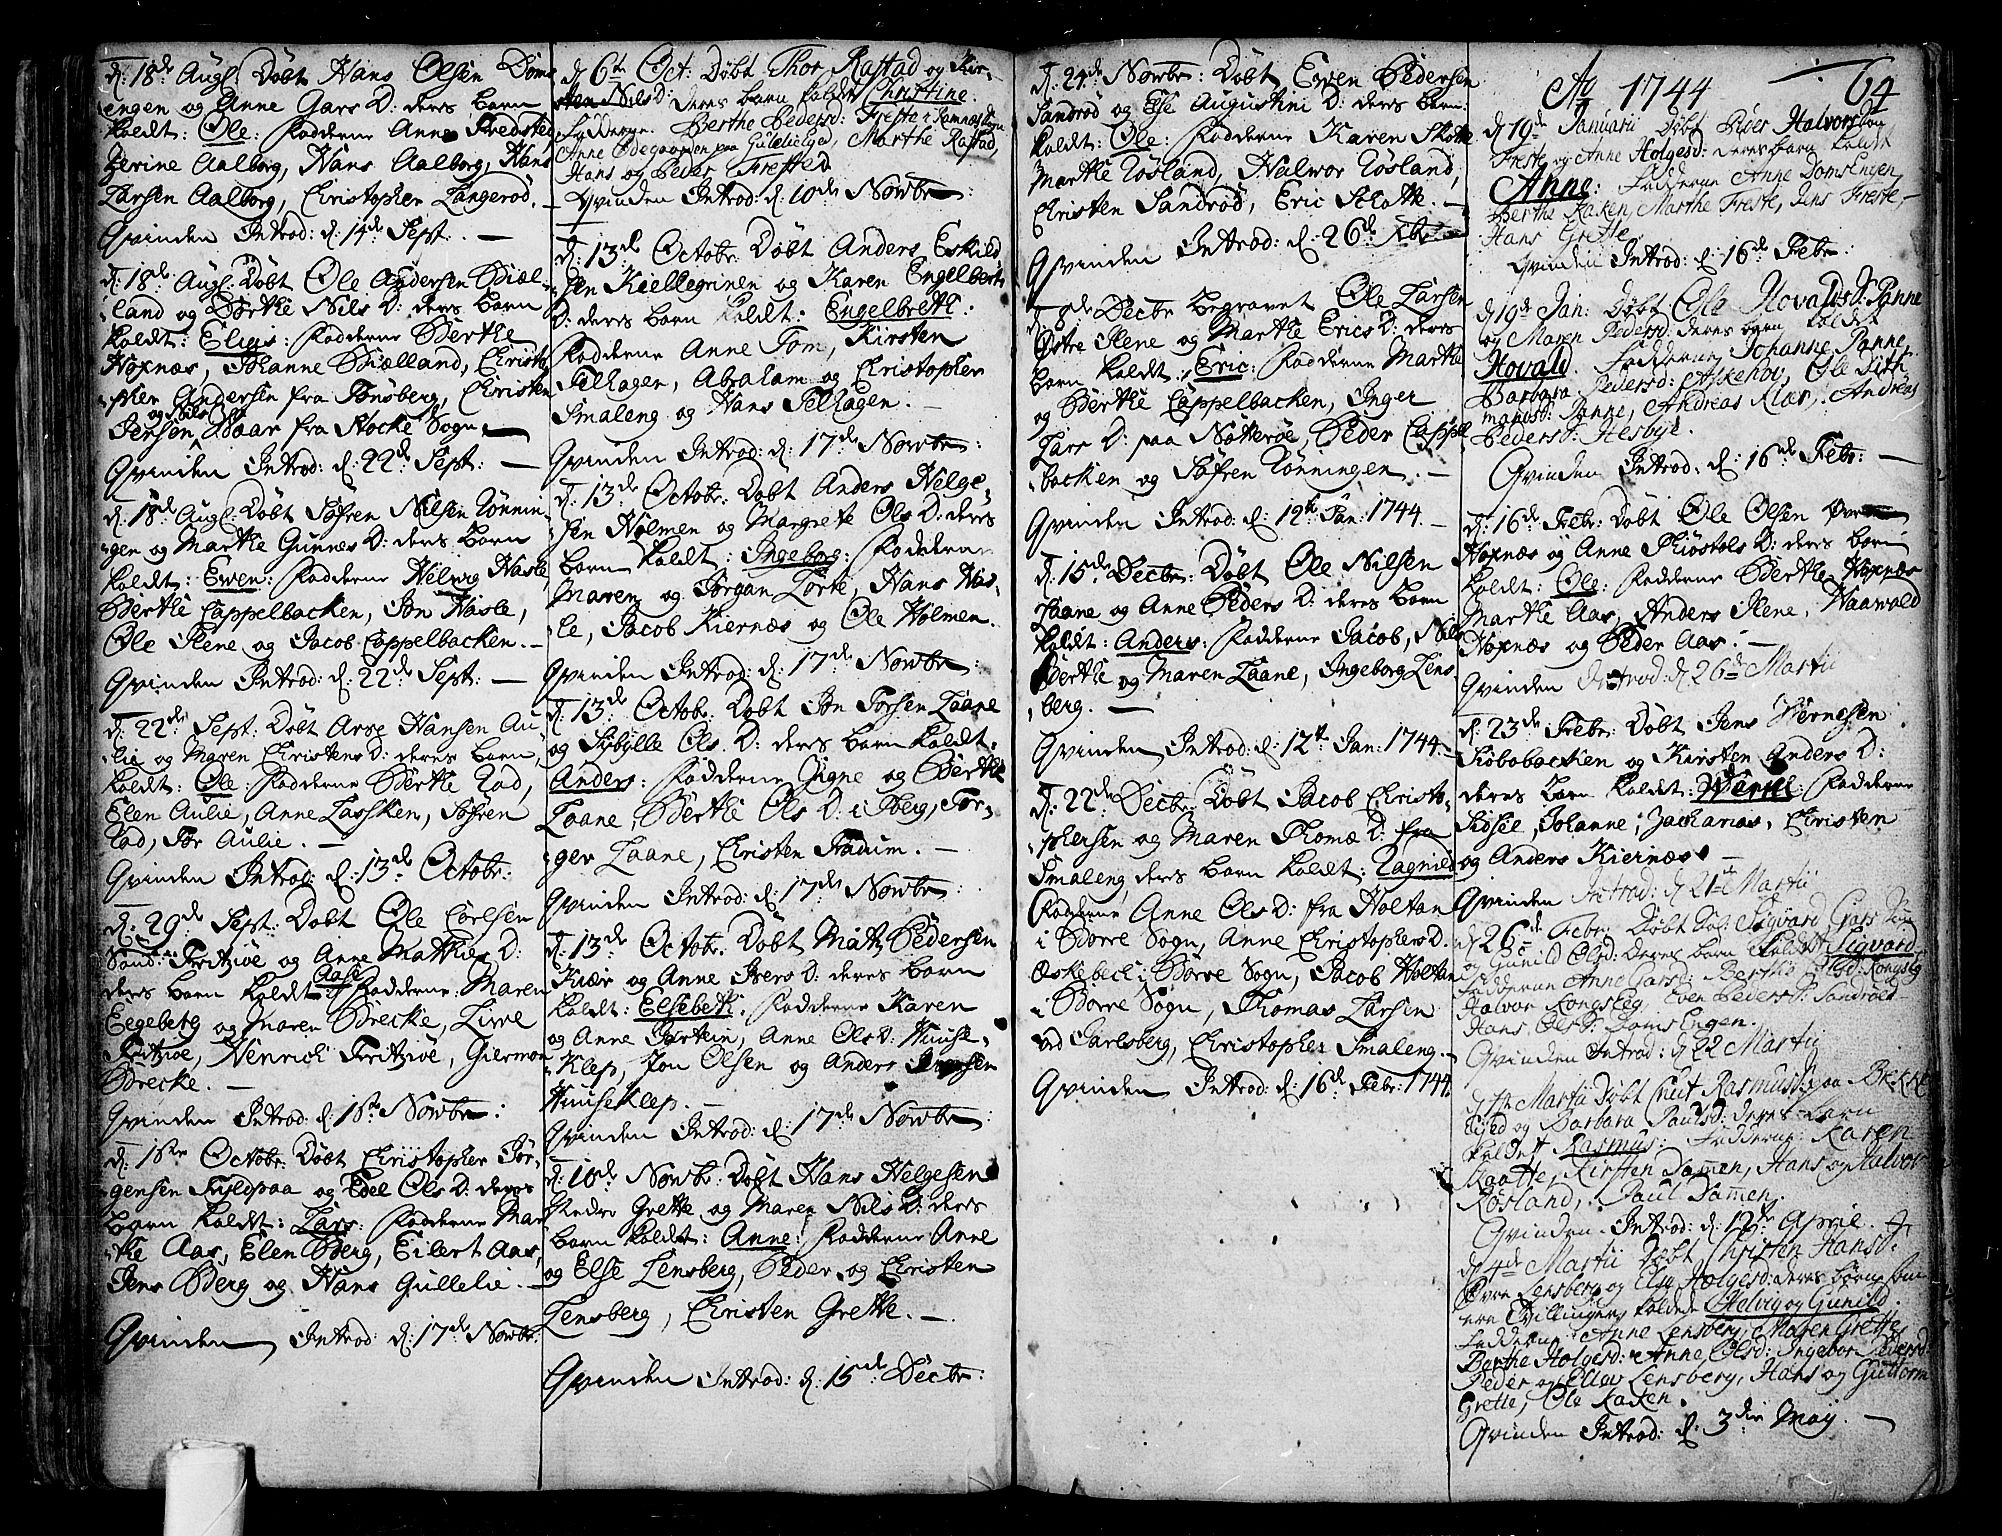 d: 18de Aug: Døbt Hans Olsen Doms
engen og Anne Gars D: deres barn
kaldt: Ole: Fadderne Anne Fredsteg
Zerine Aalborg, Hans Aalborg, Hans
Larsen Aalborg, Christopher Langerød. —
Qvinden Introd: d: 14de Sept: —
d: 18de Aug: Døbt Ole Andersen Biæl-
land og Dorthe Nils D: deres barn
kaldt: Elias: Fadderne Berthe
Hoxnæs, Johanne Biælland, Christo-
pher Andersen fra Tønsberg, Christen
og Nils
Jensen Waar fra Stocke Sogn. —
Qvinden Introd: d: 22de Sept: —
d: 18de Aug: Døbt Søfren Nilsen Rønnin-
gen og Marthe Gunnes D: deres barn
kaldt: Ewen: Fadderne Helwig Hasle
Berthe Cappelbacken, Jon Hasle,
Ole Ilene og Jacob Cappelbacken. —
Qvinden Introd: d: 22de Sept: —
d: 22de Sept: Døbt Arse Hansen Au-
lie og Maren Christens D: deres barn
kaldt: Ole: Fadderne Berthe Rød,
Elen Aulie, Anne Lassken, Søfren
Rød, Jør Aulie. —
Qvinden Introd: d: 13de Octobr:
d: 29de Sept: Døbt Ole Corlsen
Sand: Fritzøe og Anne Matthie D:
Aase
deres barn kaldt: Fadderne: Maren
Eegeberg og Maren Brecke, Livve
Fritzøe, Henrich Fritzøe, Giermon
Brecke. —
Qvinden Introd: d: 1ste Novbr:
d: 16de Octobr: Døbt Christopher Jør-
gensen Fyldpaa og Edel Ols D: deres
barn kaldt: Lars: Fadderne Mar-
the Aas, Elen Berg, Eilert Aas,
Jens Berg og Hans Gullelie. —
Qvinden Introd: d: 17de Novbr:
d: 6te Oct: Døbt Thor Rastad og Kir-
sten Nils D: deres barn kaldt Christine.
Fadderne: Berthe Pedersd: Freste i Ramnæs Sogn
Anne Ødegaarden paa Gullelieged, Marthe Rastad,
Hans og Peder Freste
Qvinden Introd: d: 10de Novbr:
d: 13de Octobr: Døbt Anders Eskild
sen Kiellegrinen og Karen Engelberts
D: deres barn kaldt: Engelbreth.
Fadderne Anne Tom, Kirsten
Selhagen, Abraham og Christopher
Smaleng og Hans Selhagen. —
Qvinden Introd: d: 17de Novbr:
d: 13de Octobr: Døbt Anders Helge-
sen Holmen og Margrete Ols D: deres
barn kaldt: Ingeborg: Fadderne
Maren og Jørgan Torte, Hans Has-
le, Jacob Kiernæs og Ole Holmen.
Qvinden Introd: d: 17de Novbr:
d: 13de Octobr: Døbt Jon Torsen Laane
og Sybylle Ols D: deres barn kaldt:
Anders: Fadderne Signe og Berthe
Laane, Berthe Ols D: i Berg, Tor-
ger Laane, Christen Fadum. —
Qvinden Introd: d: 17de Novbr:
d: 13de Octobr: Døbt Matz Pedersen
Kiær og Anne Ivers D: deres barn
kaldt: Elsebeth. Fadderne Karen
og Anne Jortein, Anne Ols D: Huuse-
Klep, Jon Olsen og Anders
Huuseklep. —
Qvinden Introd: d: 17de Novbr:
d: 10de Novbr: Døbt Hans Helgesen
Nedre Grette og Maren Nils D: deres
barn kaldt: Anne: Fadderne Anne
og Else Lensberg, Peder og Christen
Lensberg, Christen Grette. —
Qvinden Introd: d: 15de Decbr:
d: 24de Novbr: Døbt Ewen Pedersen
Sandrød og Else Augustini D: deres barn
kaldt: Ole: Fadderne Karen Skotte
Marthe Røsland, Halwor Røsland,
Christen Sandrød, Eric Schotte. —
Qvinden Introd: d: 26de Xbr:
d: 8de Decbr begravet Ole Larsen
Østre Ilene og Marthe Erics D: deres
barn kaldt: Eric: Fadderne Marthe
og Berthe Cappelbacken, Inger
Lars D: paa Nøtterøe, Peder Cappel-
backen og Søfren Rønningen. —
Qvinden Introd: d: 12te Jan: 1744. —
d: 15de Decbr: Døbt Ole Nilsen
Laane og Anne Peders D: deres barn
kaldt: Anders: Fadderne Jacob, Nils
Berthe og Maren Laane, Ingeborg Lens-
berg. —
Qvinden Introd: d: 12te Jan: 1744. —
d: 22de Decbr: Døbt Jacob Christo-
phersen og Maren Thomæ D: fra
Smaleng deres barn kaldt: Ragnild
Fadderne Anne Ols D: fra Holtan
i Borre Sogn, Anne Christophers D.
Æskebech i Borre Sogn, Jacob Holtan
i Borre Sogn, Thomas Larsen
ved Jarlsberg, Christopher Smaleng. —
Qvinden Introd: d: 16de Febr: 1744.
Ao 1744 64
d 19de Januarii Døbt Iver Halvors Søn
Freste og Anne Holgesd: deres barn kaldt
Anne: Fadderne Anne Doms Engen,
Berthe Raken, Marthe Freste, Jens Freste, —
Hans Grette.
Qvinden Introd: d: 16de Febr:
d 19de Jan: Døbt Ole Hovalds S: Panne
og Maren Pedersd: deres barn kaldet
Hovald. Fadderne Johanne Panne,
Barbara Pedersd: Askehov, Ole Dith-
mans S: Panne, Andreas Klar, Andreas
Peders S: Hesbye.
Qvinden Introd: d: 16de Febr: —
d: 16de Febr: Døbt Ole Olsen Øvre
Hoxnæs og Anne Kiøstols D: deres barn
kaldt: Ole: Fadderne Berthe Hoxnæs
Marthe Aas, Anders Ilene, Haawald
Hoxnæs og Peder Aas. —
Qvinden Introd: d 26de Martii
d: 23de Febr: Døbt Jens Wernesen
Robobacken og Kirsten Anders D:
deres barn kaldt: Fadderne
Sidsel, Johanne, Zacharias, Christen
og Anders Kiernæs. —
Qvinden Introd: d 21de Martii
d 26de Febr: Døbt Sigvard Lars Søn
og Gunild Olsd: deres barn kaldt Sigvard.
Fadderne Anne Larsd: Berthe Olsd: Rongsleg
Halvor Rongsleg, Even Peders S: Sandrøed
Hans Ols S: Doms Engen.
Qvinden Introd: d 22 Martii
d 1ste Martii Døbt Chut Rasmus S: paa Bekke
Eiged og Barbara Paulsd: deres barn
kaldet Rasmus: Fadderne: Karen
Skaatte, Kirsten Dammen, Hans og Halvor
Røsland, Paul Dammen.
Qvinden Introd: d: 12te April.
d 4de Martii Døbt Christen Hans S:
Øvre Lensberg og Else Holgesd: deres børn som
ere Tvillinger kaldede Helvig og Gunild.
Fadderne: Anne Lensberg, Maren Grette,
Berthe Holgesd: Anne Olsd: Ingebor Pedersd:
Peder og Ellev Lensberg, Hans og Guttorm
Grette, Ole Raken.
Qvinden Introd: d: 3die Maij. —